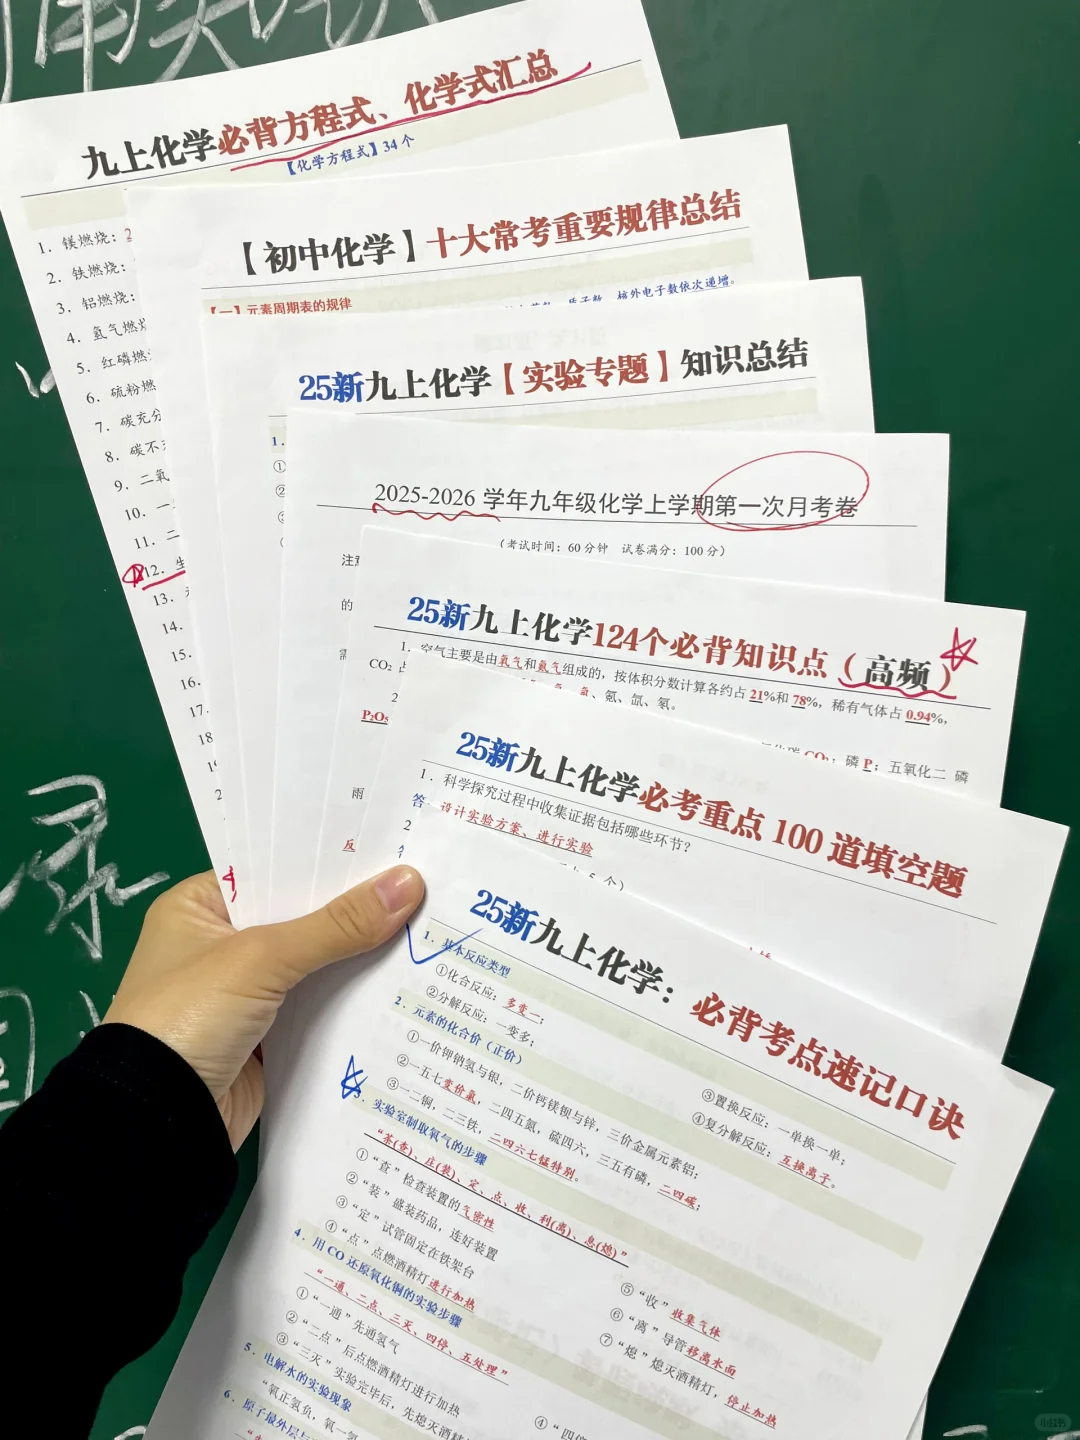 九上化学必背方程式、化学式汇总
【化学方程式】34 个
1. 镁燃烧：2
2. 铁燃烧：
3. 铝燃烧：
4. 氢气燃烧
5. 红磷燃
6. 硫粉燃
7. 碳充分
8. 碳不
9. 二氧
10. 一
11. 二
12. 生
13.
14.
15.
16.
17.
18
【初中化学】十大常考重要规律总结
【一】元素周期表的规律
质子数、核外电子数依次递增。
25新九上化学【实验专题】知识总结
1.
①
②
2025-2026 学年九年级化学上学期第一次月考卷
（考试时间：60 分钟 试卷满分：100 分）
注
的
25新九上化学124个必背知识点（高频）
1. 空气主要是由氧气和氮气组成的，按体积分数计算各约占 21%和 78%，稀有气体占 0.94%，
CO₂ 占
氪、氙、氡。
2
P₂O₅
CO₂；磷 P；五氧化二 磷
雨
反
25新九上化学必考重点 100 道填空题
1. 科学探究过程中收集证据包括哪些环节？
答：设计实验方案、进行实验
2
25新九上化学：必背考点速记口诀
1. 基本反应类型
①化合反应：多变一；
②分解反应：一变多；
③置换反应：一单换一单；
④复分解反应：互换离子。
2. 元素的化合价（正价）
①一价钾钠氢与银，二价钙镁钡与锌，三价金属元素铝；
②一五七变价氯，二四五氮，硫四六，三五有磷，二四碳；
③一二铜，二三铁，二四六七锰特别。
3. 实验室制取氧气的步骤
“茶(查)、庄(装)、定、点、收、利(离)、息(熄)”
①“查”检查装置的气密性
②“装”盛装药品，连好装置
③“定”试管固定在铁架台
④“点”点燃酒精灯进行加热
⑤“收”收集气体
⑥“离”导管移离水面
⑦“熄”熄灭酒精灯，停止加热
4. 用 CO 还原氧化铜的实验步骤
“一通、二点、三灭、四停、五处理”
①“一通”先通氢气
②“二点”后点燃酒精灯进行加热
③“三灭”实验完毕后，先熄灭酒精
④“四停
5. 电解水的实验现象
“氧正氢负，氧一氢
6. 原子最外层与